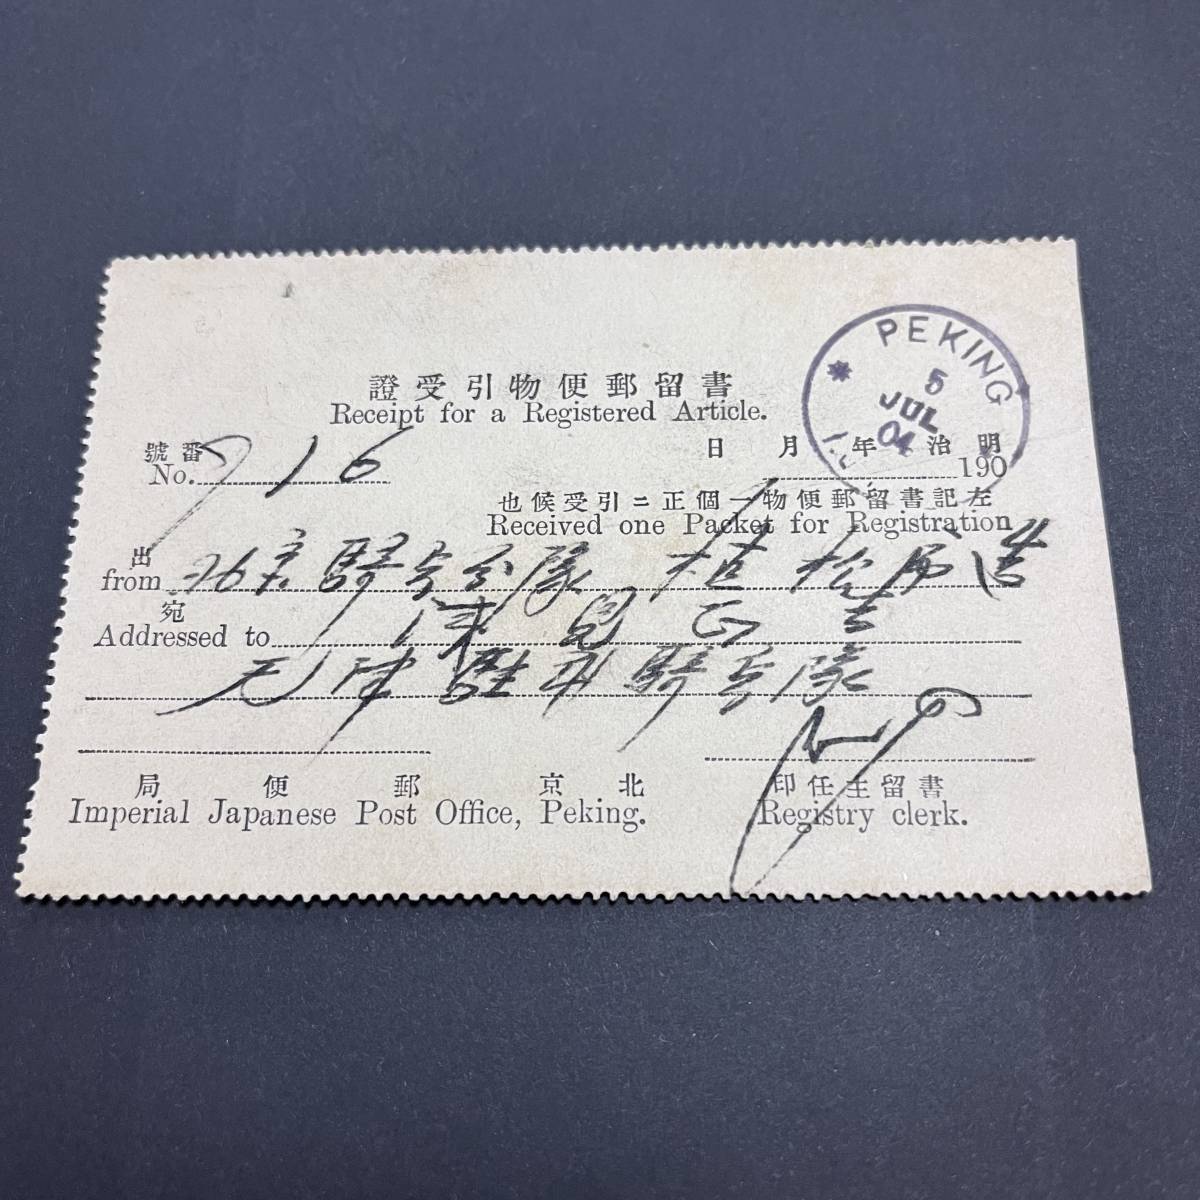 證受引物便郵留書
Receipt for a Registered Article.
PEKING
5
JUL
04
號番
No. 716
日 月 年 治 明
190
也候受引ニ正個一物便郵留書記左
Received one Packet for Registration
出
from 北京騎兵分隊 植松
宛
Addressed to 津 見 正 吉
天津駐屯騎兵隊
局便郵京北
Imperial Japanese Post Office, Peking.
印任主留書
Registry clerk.